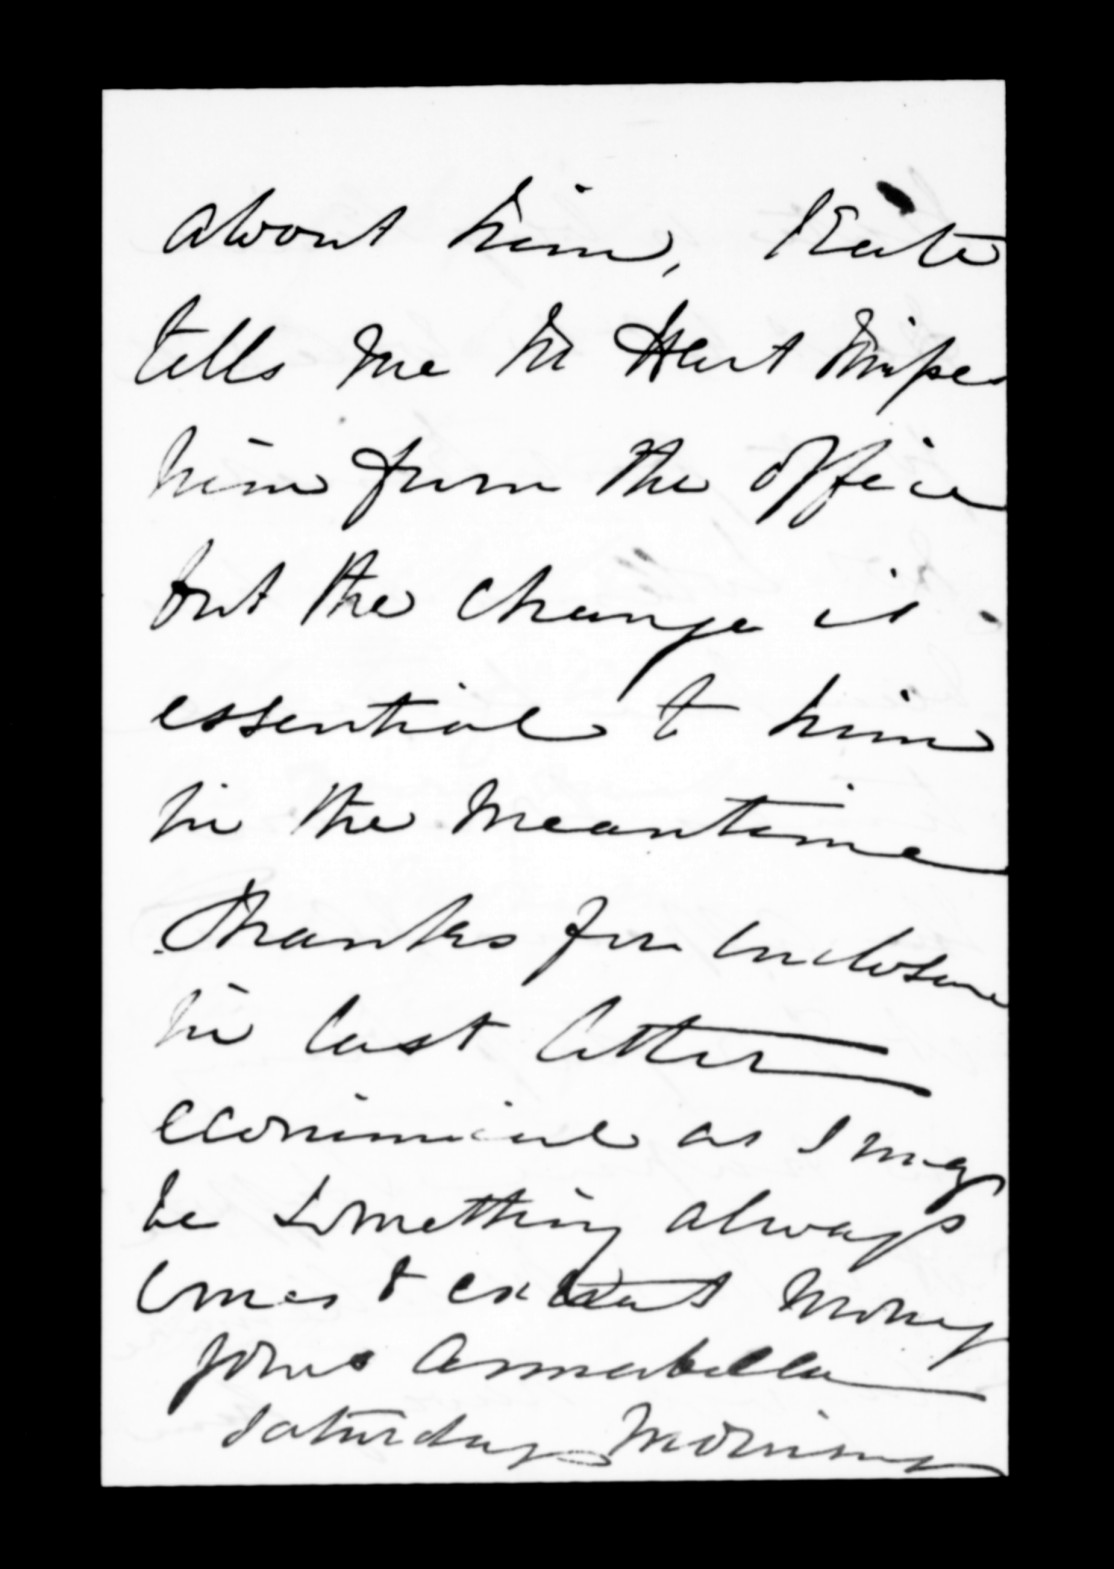 about him, Kate
tells me Mr Hart misses
him from the office
but the change is
essential to him
in the meantime
Thanks for enclosure
in last letter
economical as I may
be something always
comes to extract money
Yours Annabella
Saturday Morning